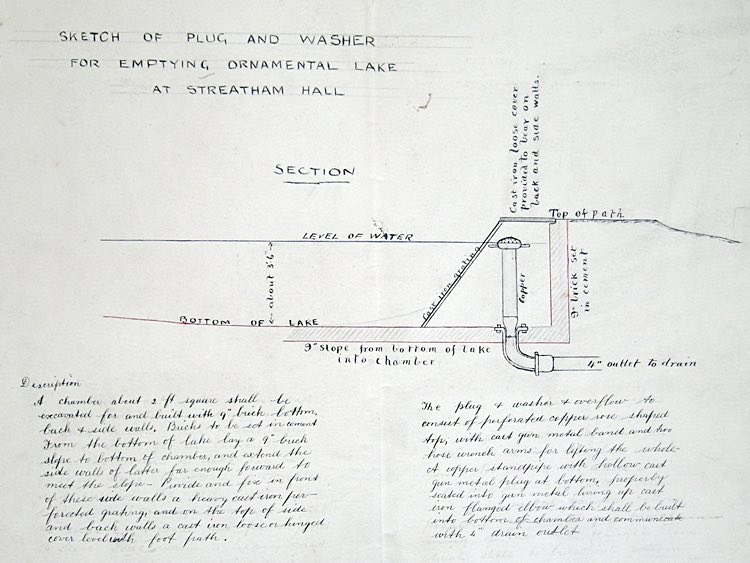 SKETCH OF PLUG AND WASHER
FOR EMPTYING ORNAMENTAL LAKE
AT STREATHAM HALL
SECTION
Cast iron loose cover
provided to bear on
back and side walls.
Top of path
LEVEL OF WATER
about 3'6"
Cast iron grating
Copper
9" brick set
in cement
BOTTOM OF LAKE
9" slope from bottom of lake
into chamber
4" outlet to drain
Description
A chamber about 2 ft square shall be
excavated for and built with 9" brick bottom,
back & side walls. Bricks to be set in cement
From the bottom of lake lay a 9" brick
slope to bottom of chamber, and extend the
side walls of latter far enough forward to
meet the slope - Provide and fix in front
of these side walls a heavy cast iron per-
forected grating, and on the top of side
and back walls a cast iron loose or hinged
cover level with foot path.
The plug & washer & overflow to
consist of perforated copper rose shaped
top, with cast gun metal band and two
hose wrench arms for lifting the whole -
A copper standpipe with hollow cast
gun metal plug at bottom, properly
seated into gun metal lining of cast
iron flanged elbow which shall be built
into bottom of chamber and communicate
with 4" drain outlet